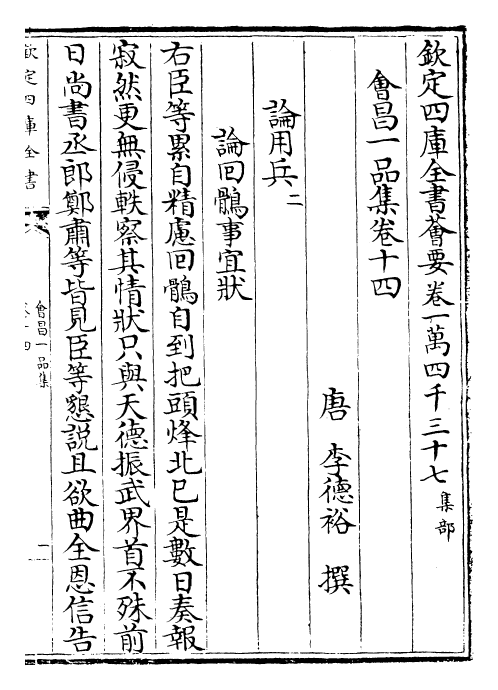 欽定四庫全書薈要卷一萬四千三十七 集部
會昌一品集卷十四
唐 李德裕 撰
論用兵二
論回鶻事宜狀
右臣等累自精慮回鶻自到把頭烽北已是數日奏報
寂然更無侵軼察其情狀只與天德振武界首不殊前
日尚書丞郎鄭肅等皆見臣等懇說且欲曲全恩信告
欽定四庫全書
會昌一品集
卷十四
一